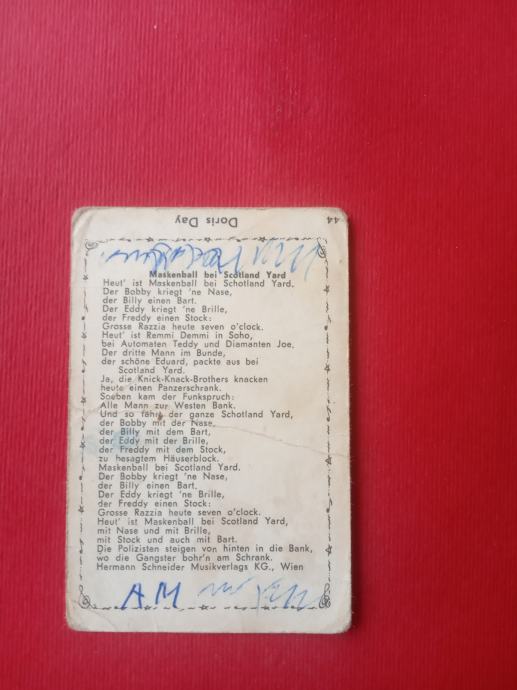 44
Doris Day
Maskenball bei Scotland Yard
Heut' ist Maskenball bei Schotland Yard.
Der Bobby kriegt 'ne Nase,
der Billy einen Bart.
Der Eddy kriegt 'ne Brille,
der Freddy einen Stock:
Grosse Razzia heute seven o'clock.
Heut' ist Remmi Demmi in Soho,
bei Automaten Teddy und Diamanten Joe.
Der dritte Mann im Bunde,
der schöne Eduard, packte aus bei
Scotland Yard.
Ja, die Knick-Knack-Brothers knacken
heute einen Panzerschrank.
Soeben kam der Funkspruch:
Alle Mann zur Westen Bank.
Und so fährt der ganze Schotland Yard,
der Bobby mit der Nase,
der Billy mit dem Bart,
der Eddy mit der Brille,
der Freddy mit dem Stock,
zu besagtem Häuserblock.
Maskenball bei Scotland Yard.
Der Bobby kriegt 'ne Nase,
der Billy einen Bart.
Der Eddy kriegt 'ne Brille,
der Freddy einen Stock:
Grosse Razzia heute seven o'clock.
Heut' ist Maskenball bei Scotland Yard,
mit Nase und mit Brille,
mit Stock und auch mit Bart.
Die Polizisten steigen von hinten in die Bank,
wo die Gangster bohr'n am Schrank.
Hermann Schneider Musikverlags KG., Wien
AM